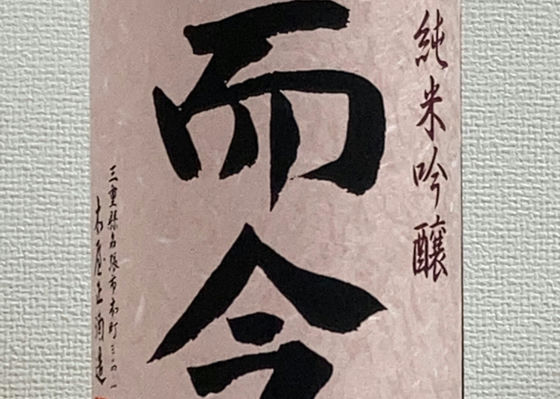 純米吟醸
而今
三重縣名張市本町
木屋正酒造